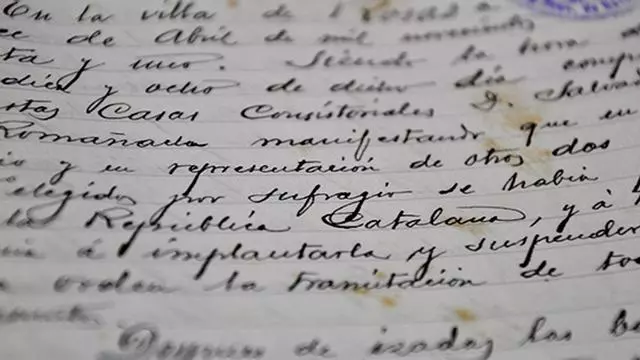 En la villa de Rosas a
ce de Abril de mil novecientos
ta y uno. Siendo la hora
dieci y ocho de dicho dia comp
stas Casas Consistoriales D. Salva
Romañach manifestando que en
io y en representación de otros dos
elegidos por sufragio se habia
la República Catalana, y á
nia á implantarla y suspender
orden la tramitación de to
Despues de izadas las ba